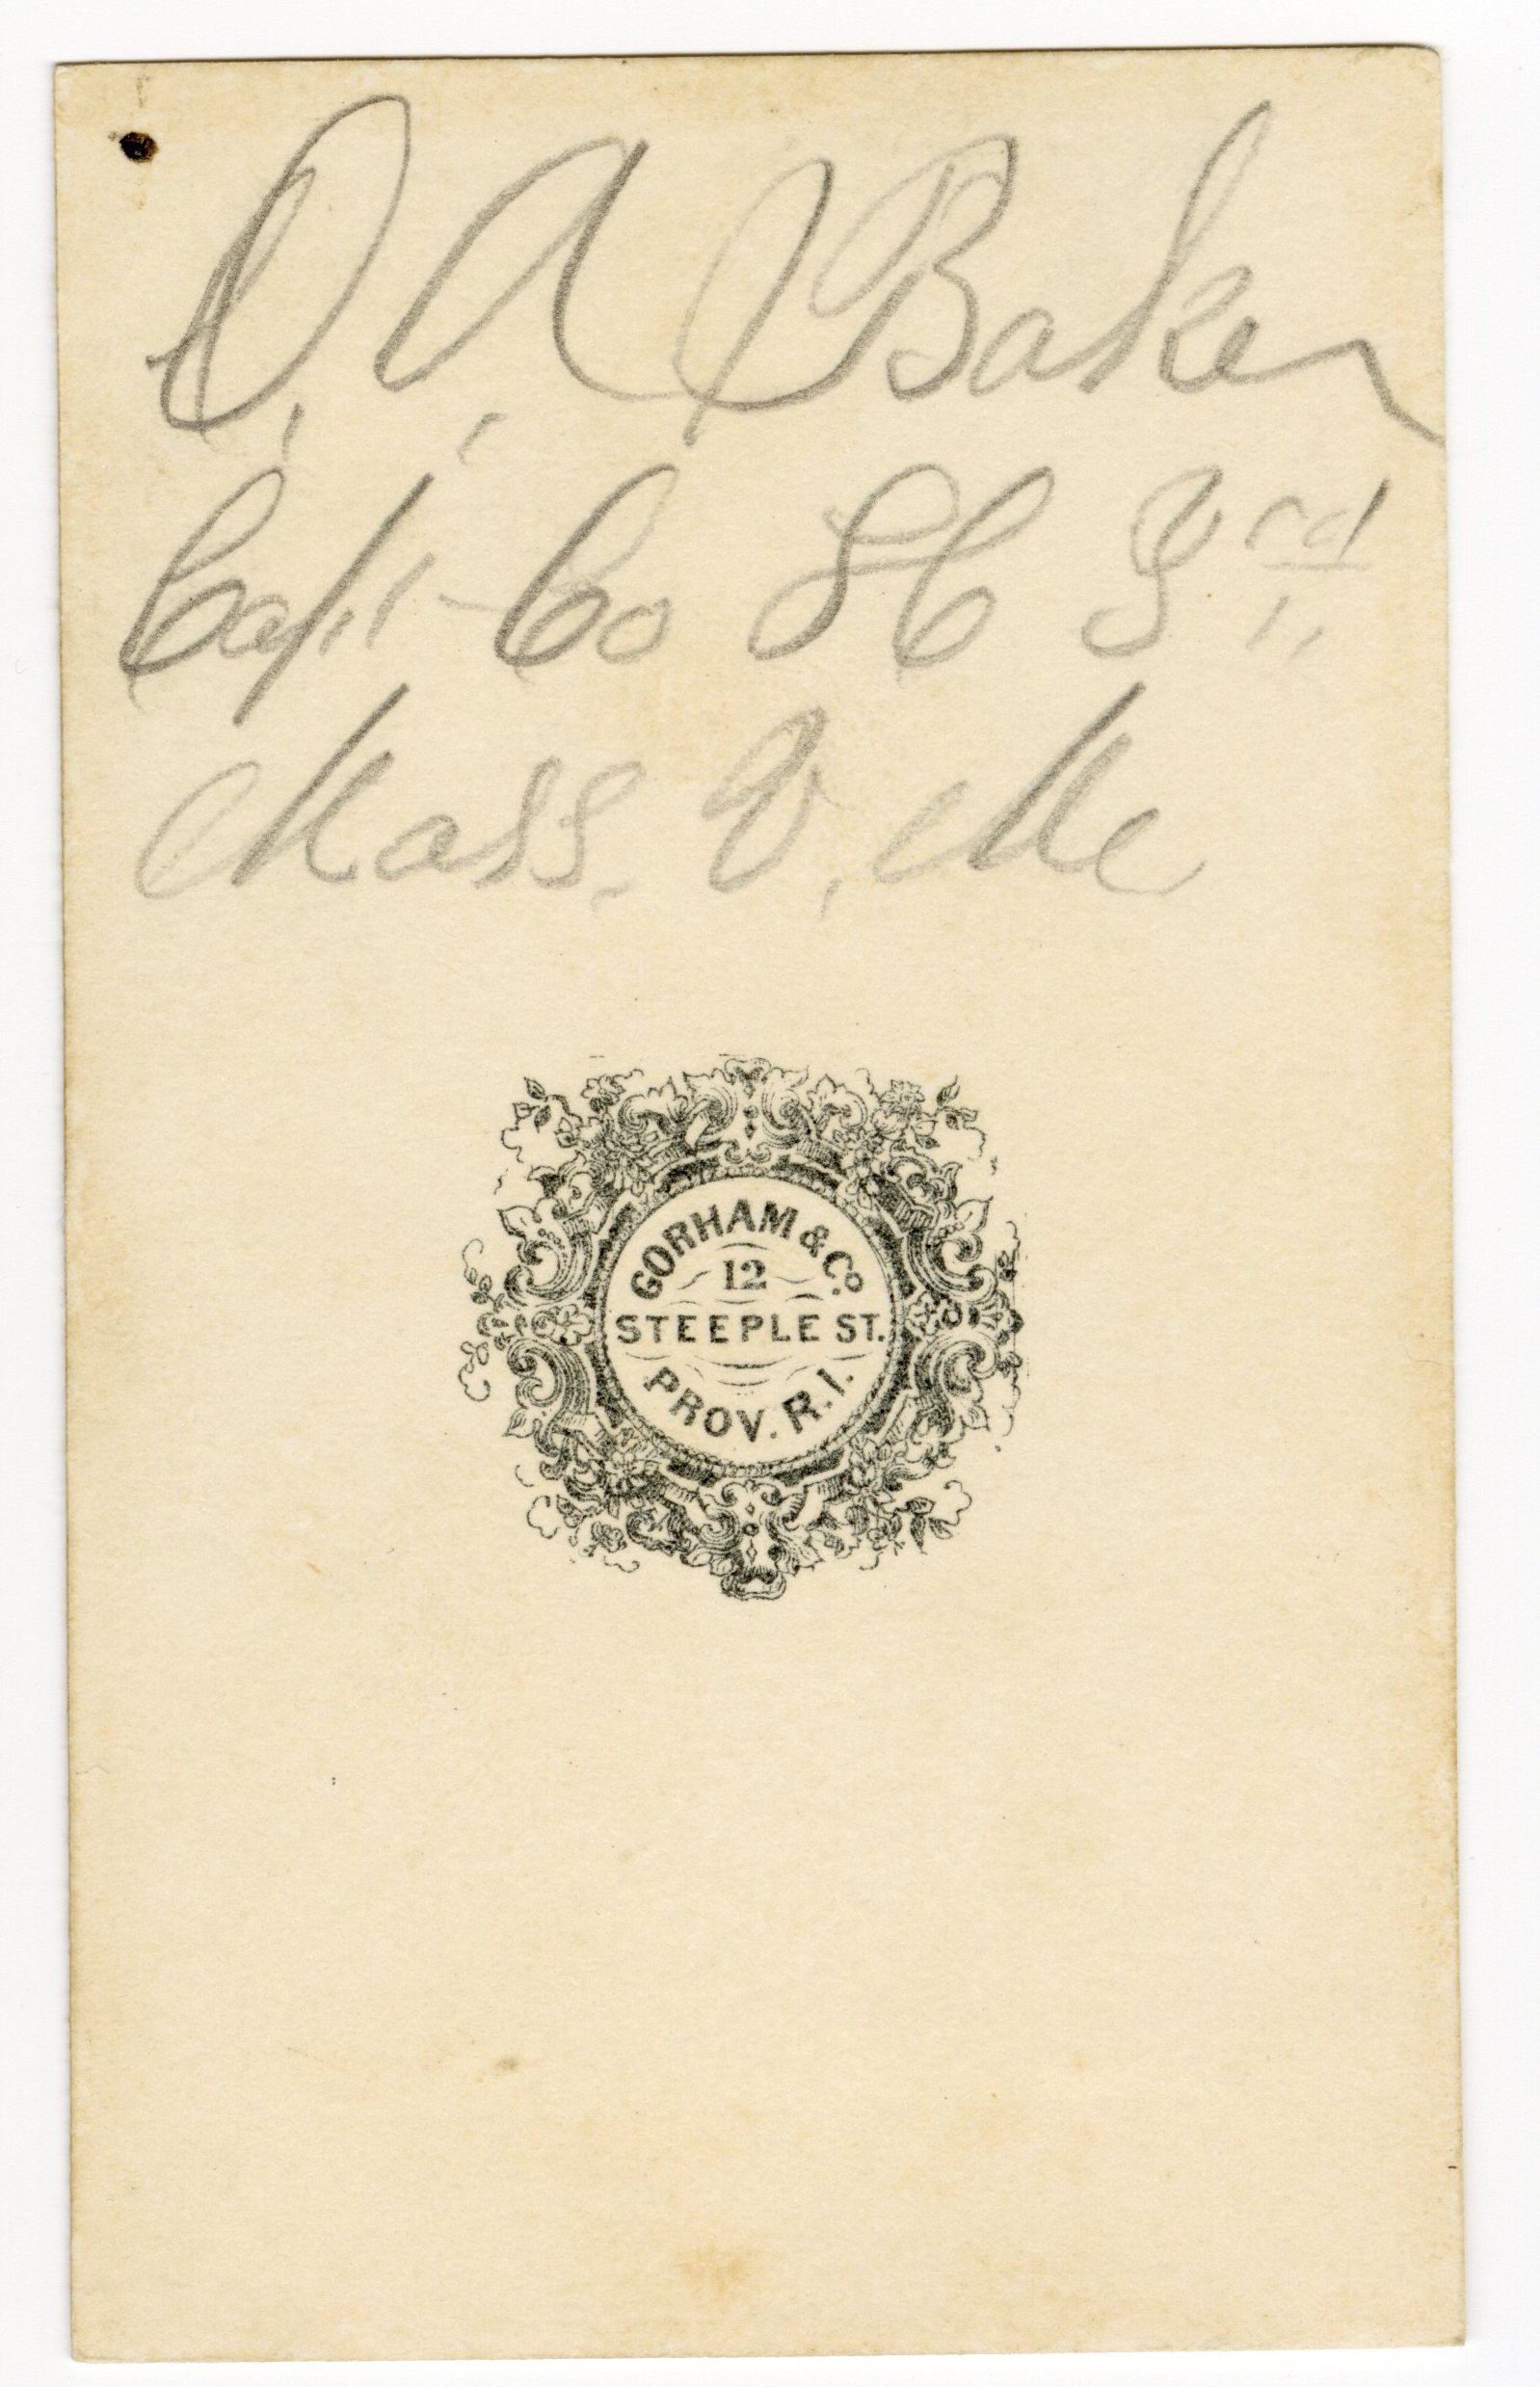 O. A. Baker
Capt Co H 3rd
Mass. V. Me
GORHAM & Co.
12
STEEPLE ST.
PROV. R.I.